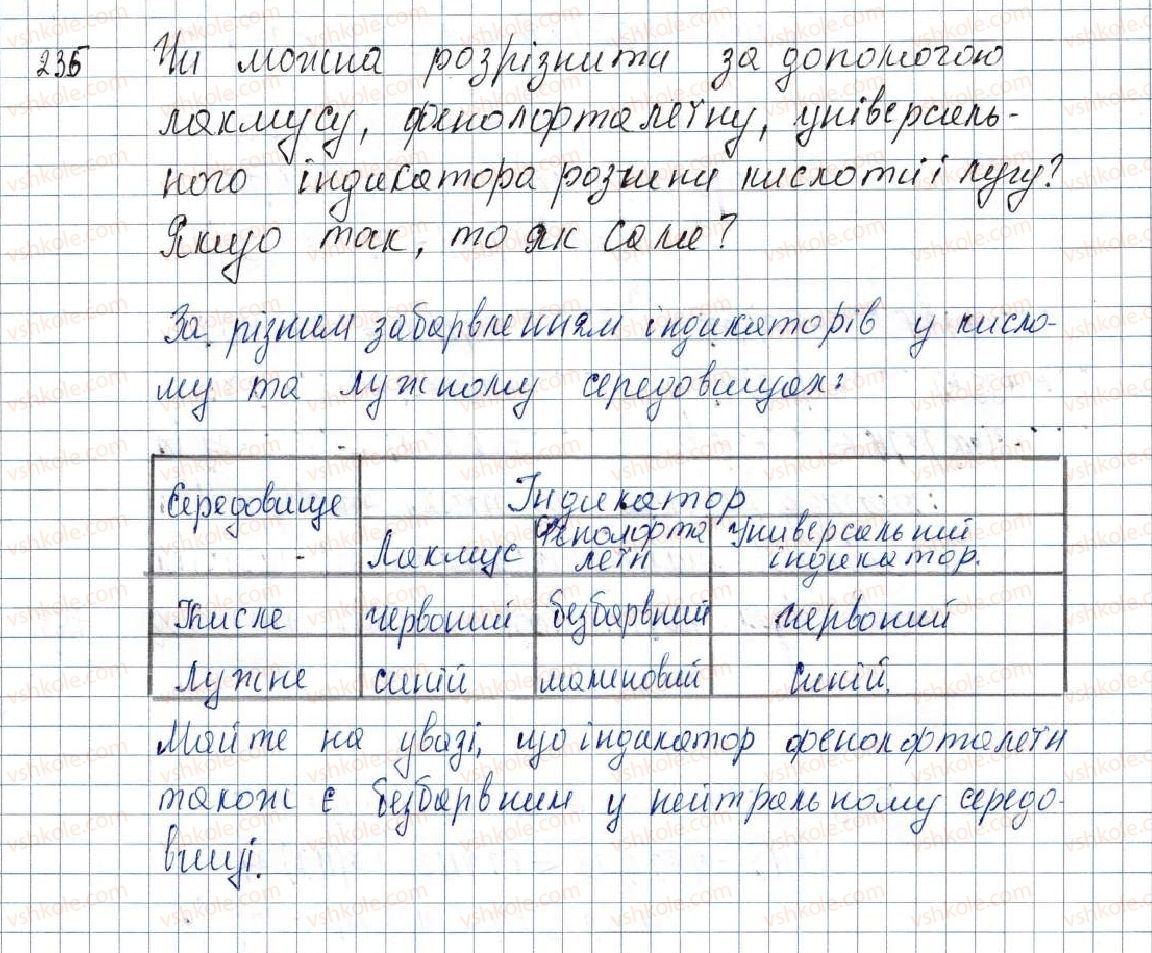 236 Чи можна розрізнити за допомогою
лакмусу, фенолфталеїну, універсаль-
ного індикатора розчини кислоти і лугу?
Якщо так, то як саме?
За різним забарвленням індикаторів у кисло-
му та лужному середовищах:
Середовище Індикатор
Лакмус Фенолфта леїн Універсальний індикатор.
Кисле червоний безбарвний червоний
Лужне синій малиновий синій.
Майте на увазі, що індикатор фенолфталеїн
також є безбарвним у нейтральному середо-
вищі.
vshkole.com